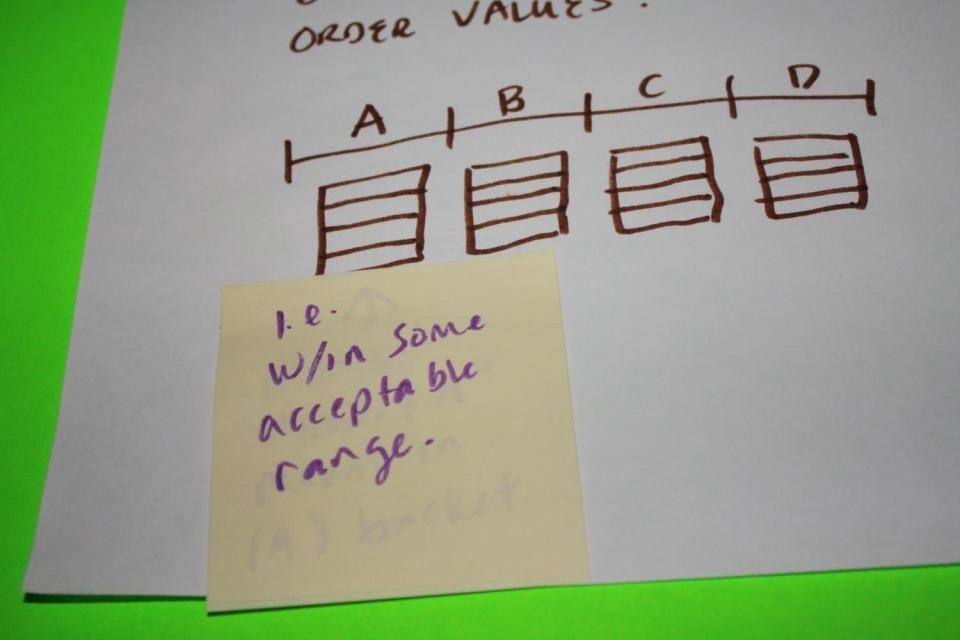 ORDER VALUES.
A B C D
I.e.
W/in some
acceptable
range.
(A) bucket